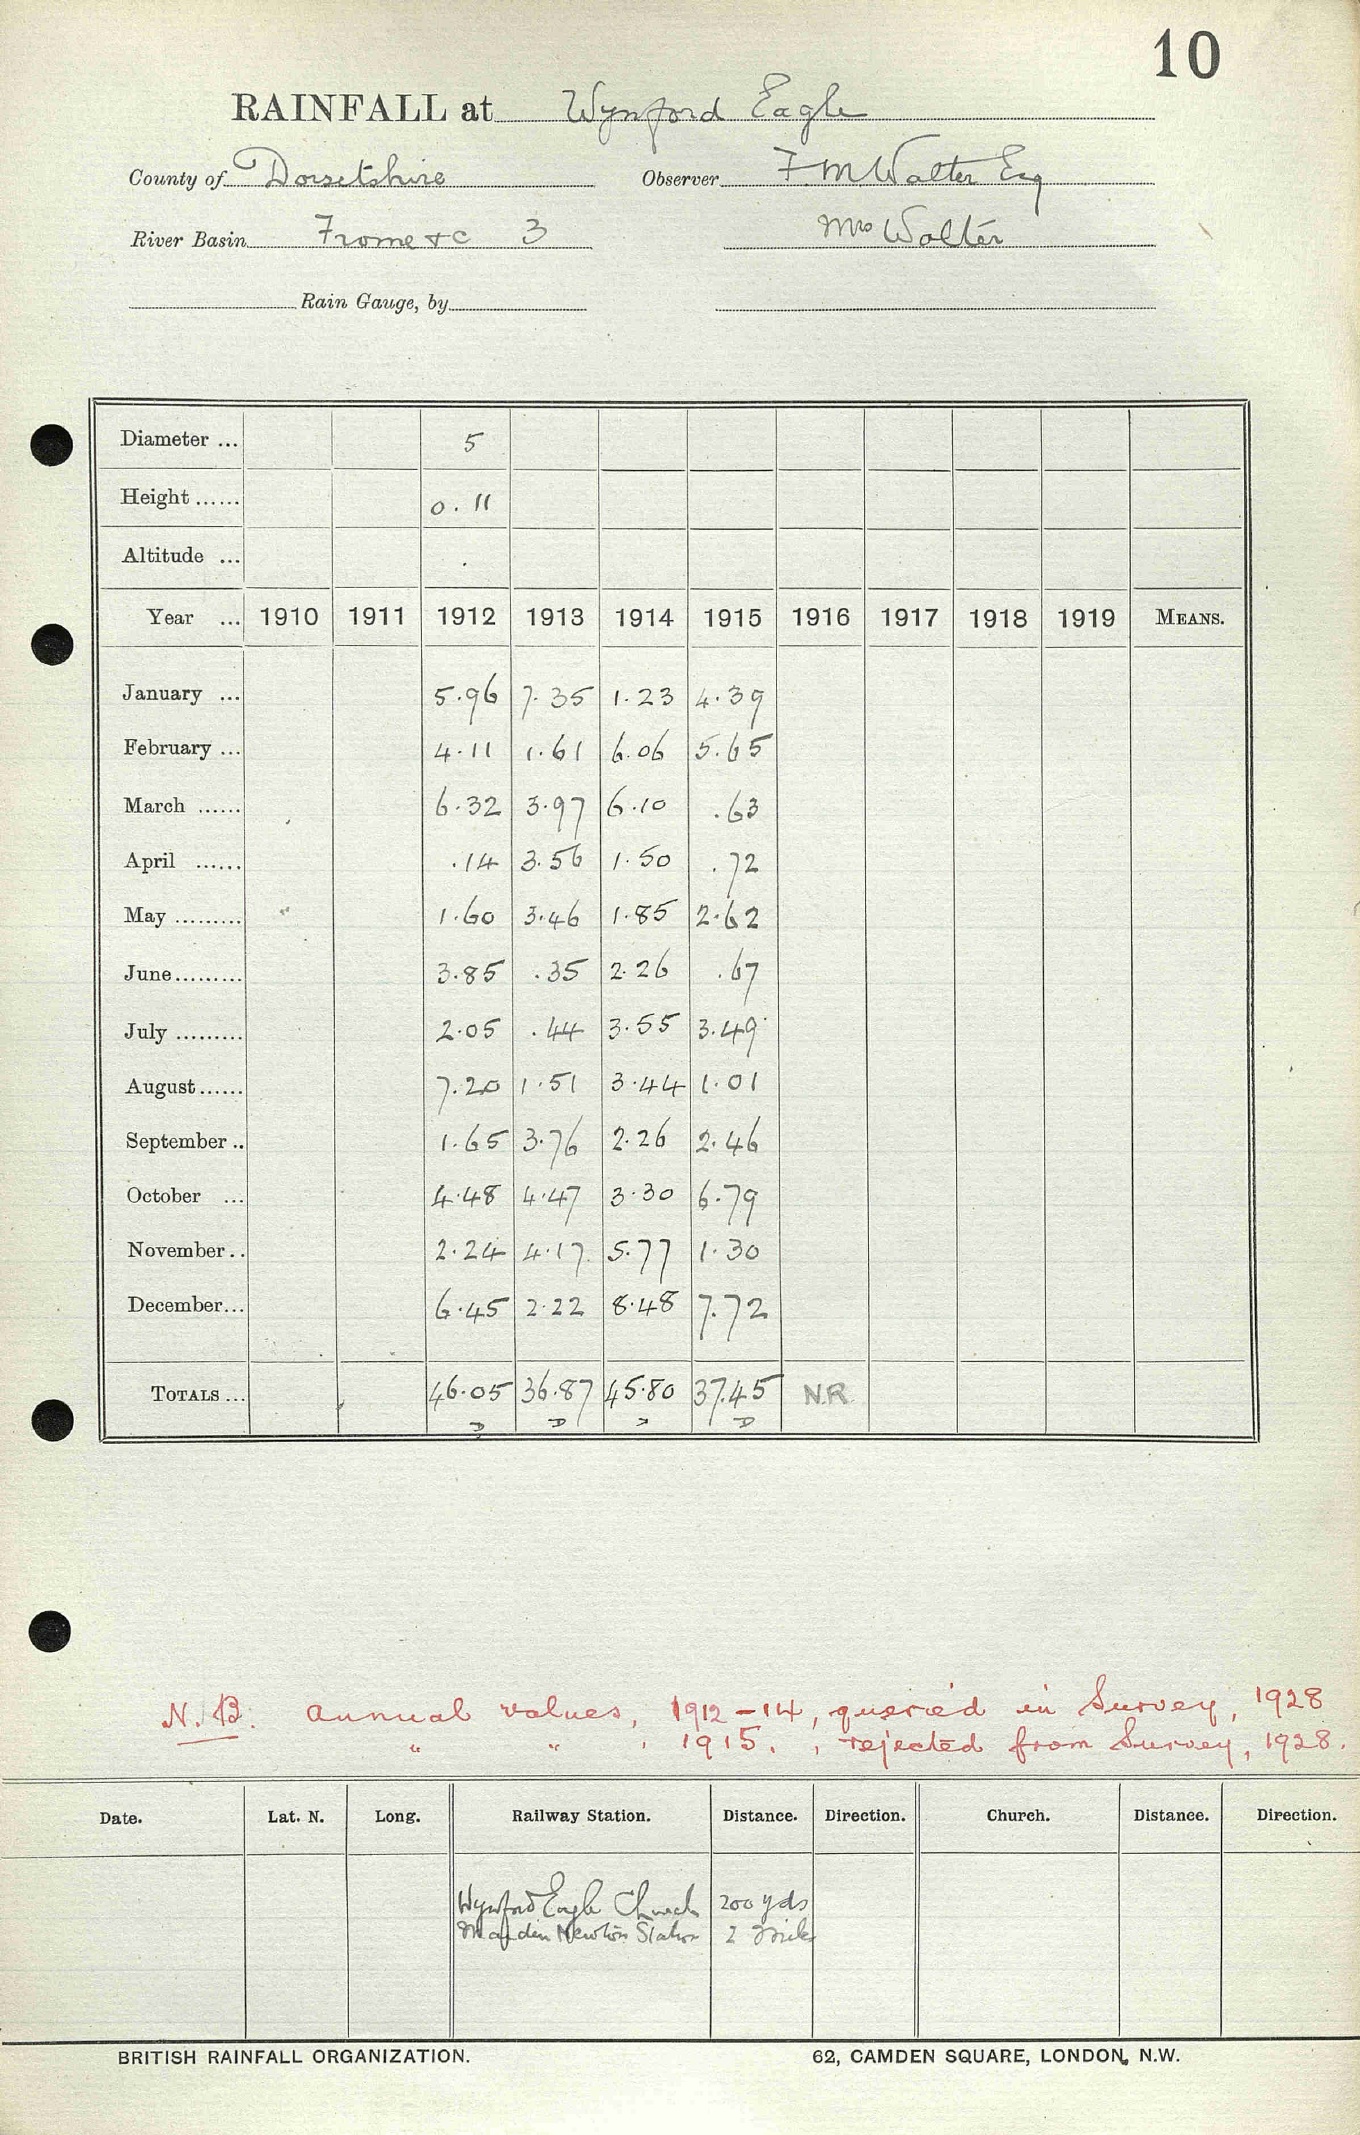 10
RAINFALL at Wynford Eagle
County of Dorsetshire Observer F. M Walter Esq
River Basin Frome &c 3 Mrs Walter
Rain Gauge, by
Diameter ... 5
Height ...... 0.11
Altitude ...
Year ... 1910 1911 1912 1913 1914 1915 1916 1917 1918 1919 MEANS.
January ... 5.96 7.35 1.23 4.39
February ... 4.11 1.61 6.06 5.65
March ...... 6.32 3.97 6.10 .63
April ...... .14 3.56 1.50 .72
May ......... 1.60 3.46 1.85 2.62
June......... 3.85 .35 2.26 .67
July ......... 2.05 .44 3.55 3.49
August...... 7.20 1.51 3.44 1.01
September .. 1.65 3.76 2.26 2.46
October ... 4.48 4.47 3.30 6.79
November .. 2.24 4.17 5.77 1.30
December... 6.45 2.22 8.48 7.72
TOTALS ... 46.05 36.87 45.80 37.45 N.R.
D D D D
N.B. Annual values, 1912-14, queried in Survey, 1928
" " , 1915. , rejected from Survey, 1928.
Date. Lat. N. Long. Railway Station. Distance. Direction. Church. Distance. Direction.
Wynford Eagle Church 200 yds
Maiden Newton Station 2 Miles
BRITISH RAINFALL ORGANIZATION. 62, CAMDEN SQUARE, LONDON, N.W.